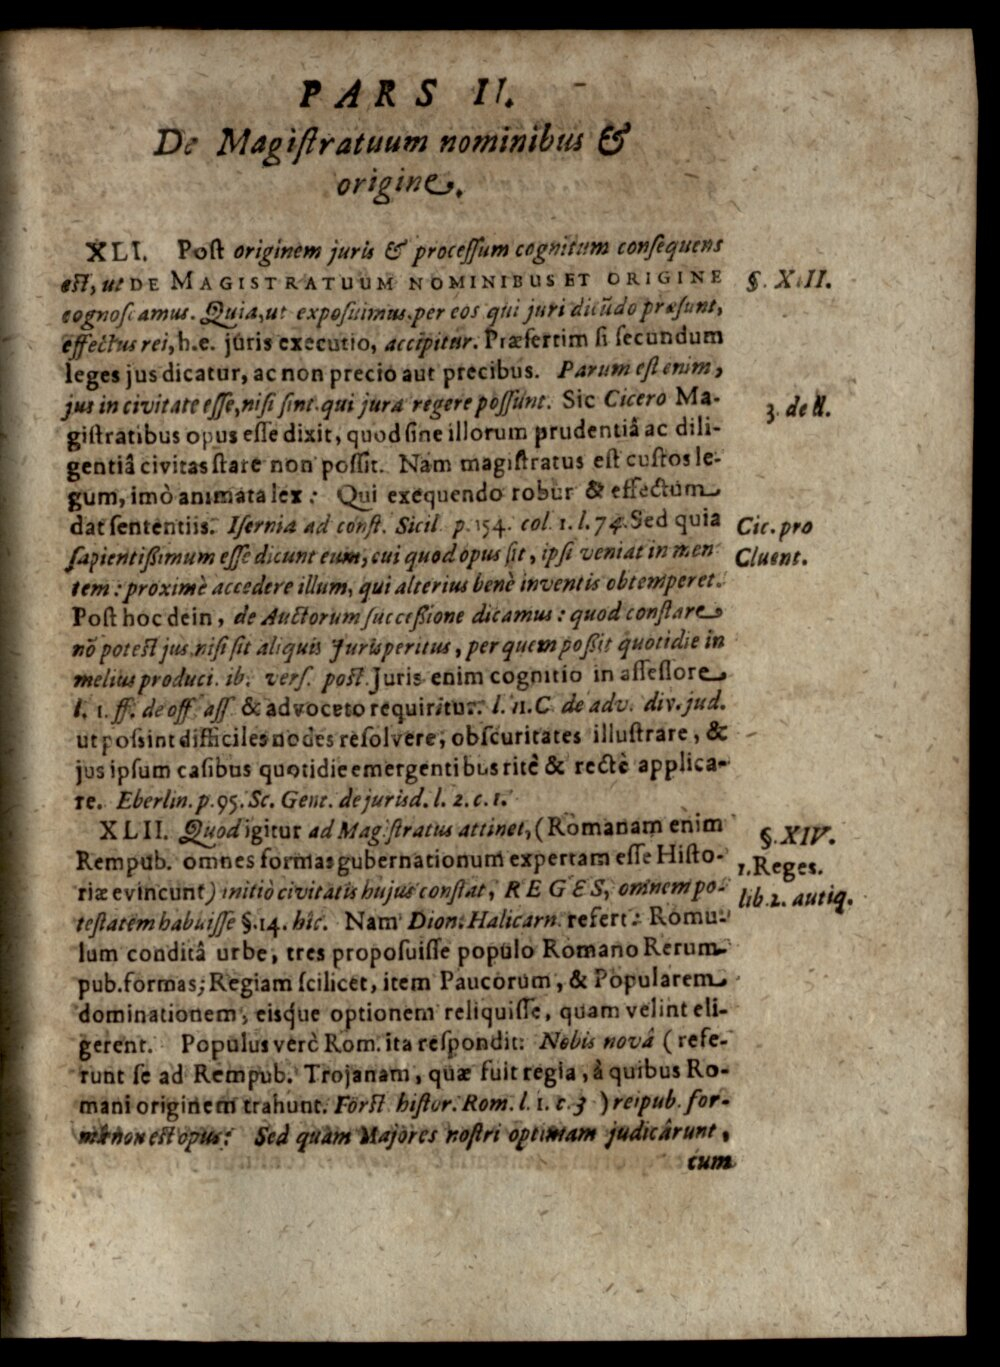 PARS II.
De Magiſtratuum nominibus &
origine.
XLI. Poſt originem juris & proceſſum cognitum conſequens
eſt, ut DE MAGISTRATUUM NOMINIBUS ET ORIGINE
§. XIII.
cognoſcamus. Quia, ut expoſuimus, per eos qui juri dicūdo præſunt,
effectus rei, h.e. juris executio, accipitur. Præſertim ſi ſecundum
leges jus dicatur, ac non precio aut precibus. Parum eſt enim,
jus in civitate eſſe, niſi ſint qui jura regere poſſunt. Sic Cicero Ma-
3. de ll.
giſtratibus opus eſſe dixit, quod ſine illorum prudentiâ ac dili-
gentiâ civitas ſtare non poſſit. Nam magiſtratus eſt cuſtos le-
gum, imò animata lex: Qui exequendo robur & effectum
dat ſententiis. Iſernia ad conſt. Sicil p. 154. col 1. l. 74. Sed quia
Cic. pro
ſapientißimum eſſe dicunt eum, cui quod opus ſit, ipſi veniat in men
Cluent.
tem: proximè accedere illum, qui alterius benè inventis obtemperet.
Poſt hoc dein, de Auctorum ſucceßione dicamus: quod conſtare
nō poteſt jus, niſi ſit aliquis Juriſperitus, per quem poßit quotidie in
melius produci. ib. verſ. poſt. Juris enim cognitio in aſſeſſore
l. 1. ff. de off. aſſ & advoceto requiritur. l. 11. C de adv. div. jud.
ut poſsint difficiles nodes reſolvere, obſcuritates illuſtrare, &
jus ipſum caſibus quotidie emergentibus ritè & rectè applica-
re. Eberlin. p. 95. Sc. Gent. de jurisd. l. 2. c. 1.
XLII. Quod igitur ad Magiſtratus attinet, (Romanam enim
§. XIV.
Rempub. omnes formas gubernationum expertam eſſe Hiſto-
1. Reges.
riæ evincunt) initio civitatis hujus conſtat, REGES, omnem po-
lib. 2. antiq.
teſtatem habuiſſe §. 14. hic. Nam Dion. Halicarn. refert: Romu-
lum conditâ urbe, tres propoſuiſſe populo Romano Rerum
pub. formas; Regiam ſcilicet, item Paucorum, & Popularem
dominationem, eisque optionem reliquiſſe, quam velint eli-
gerent. Populus verò Rom. ita reſpondit: Nobis novâ (refe-
runt ſe ad Rempub. Trojanam, quæ fuit regia, à quibus Ro-
mani originem trahunt. Förſt hiſtor. Rom. l. 1. c. 3 ) reipub. for-
mâ non eſt opus: Sed quam Majores noſtri optimam judicârunt,
cum